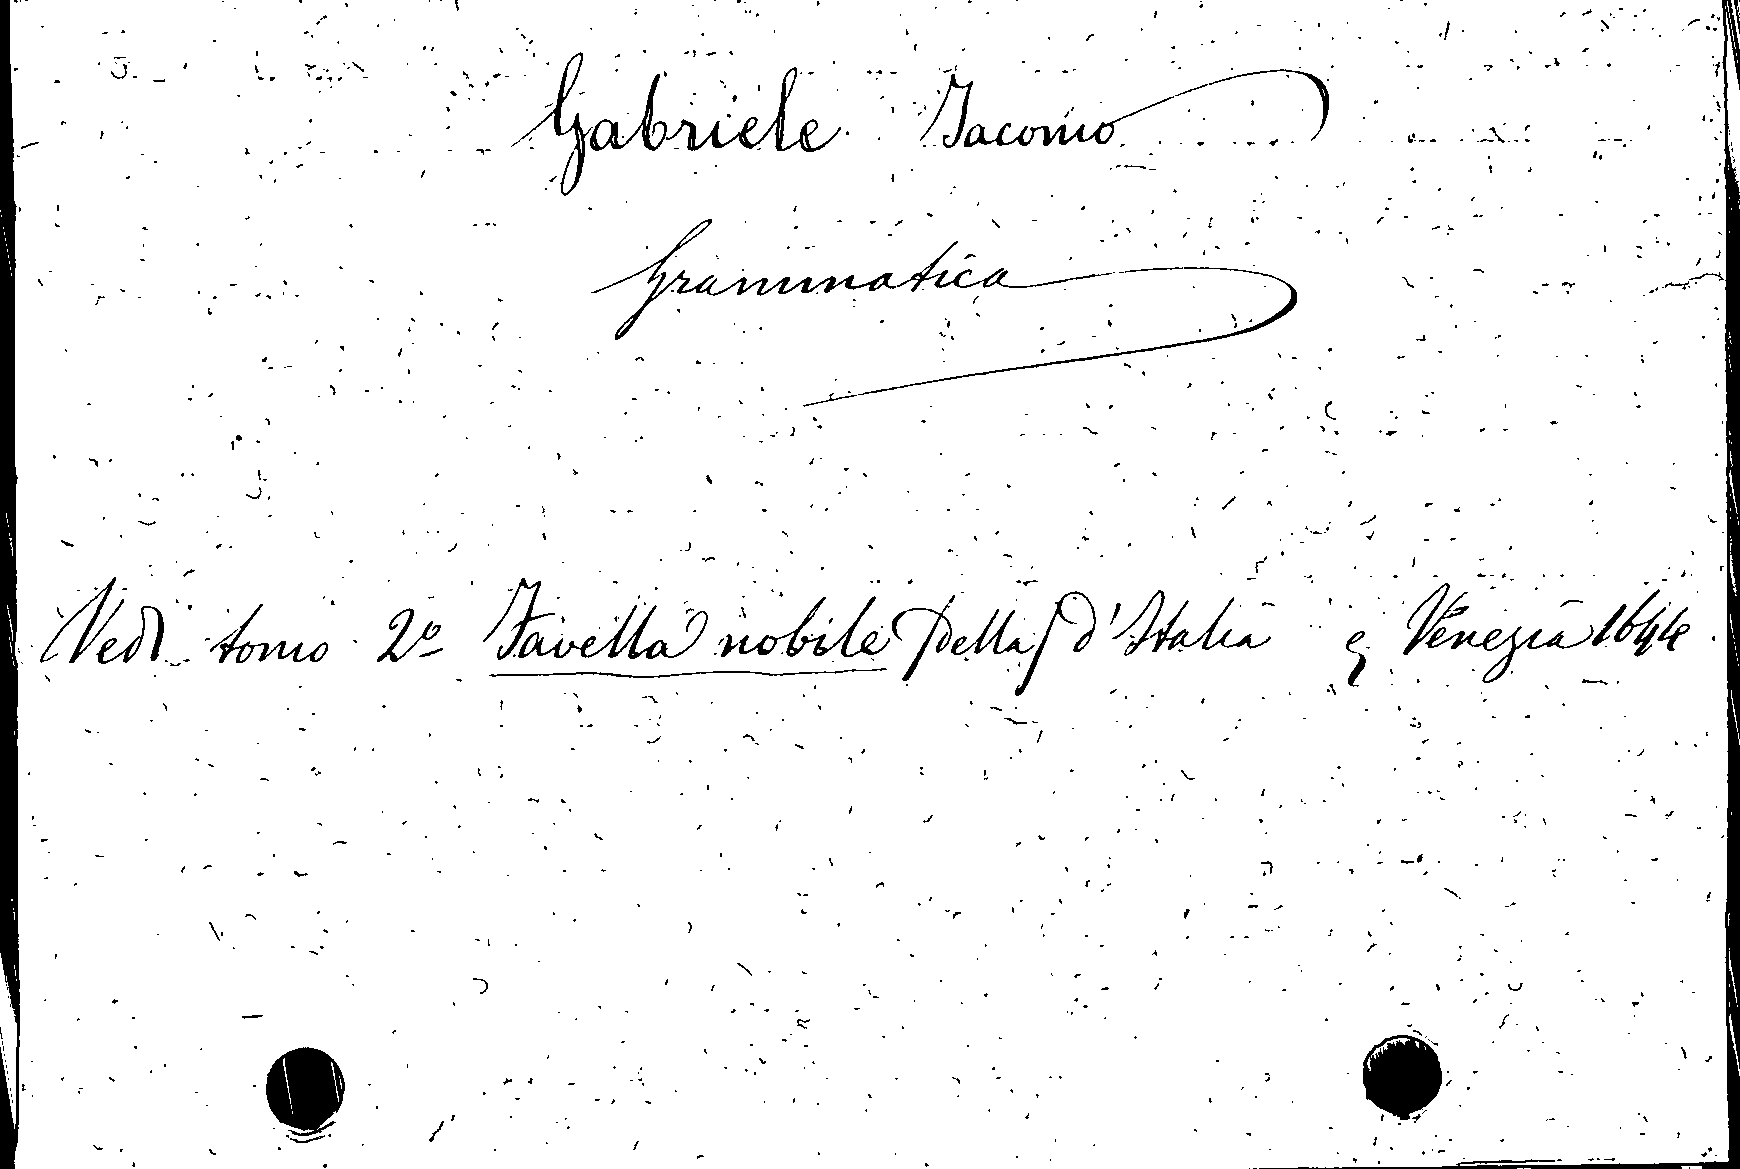 Gabriele Iacomo
Grammatica
Vedi tomo 2º Favella nobile (della) d'Italia Venezia 1644